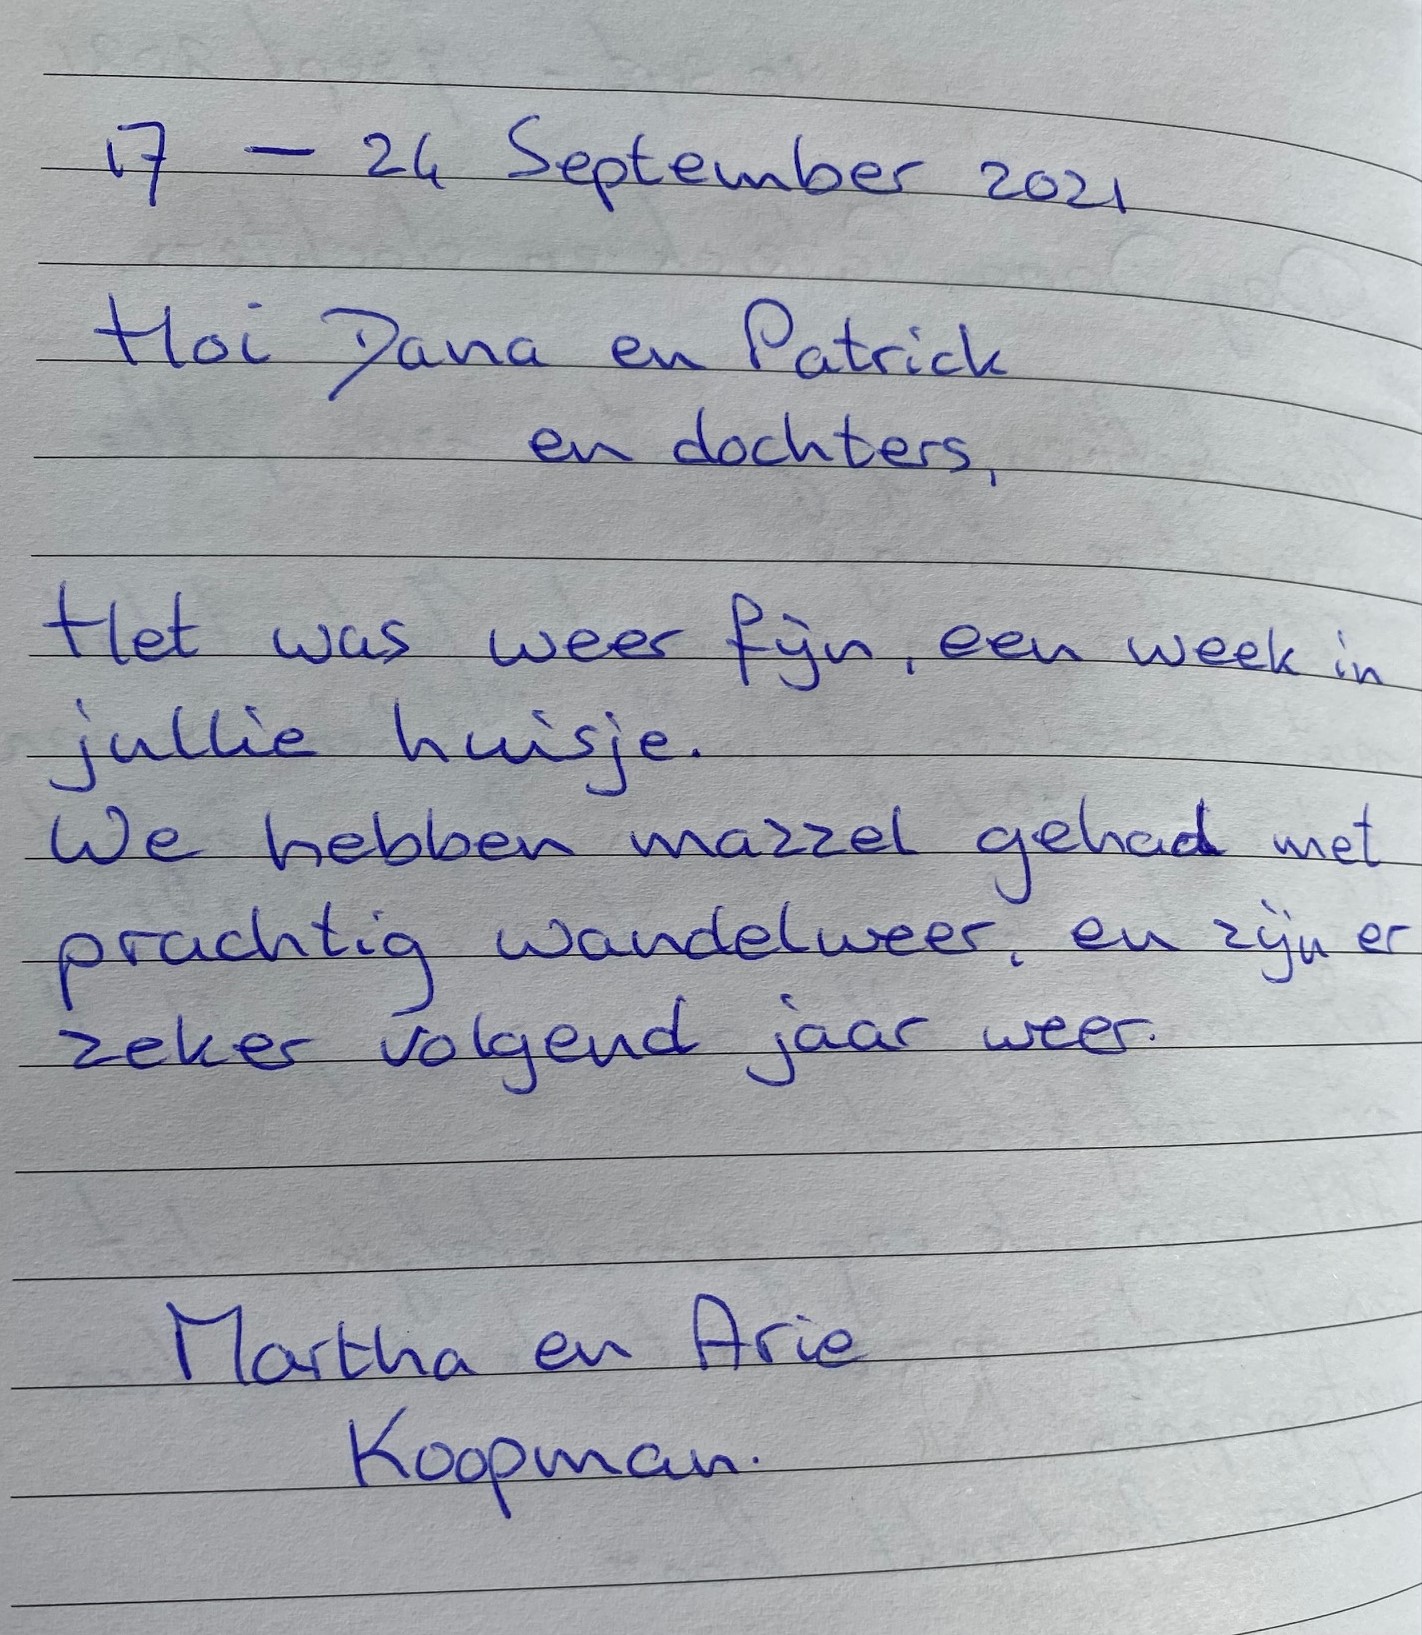 17 – 24 September 2021
Hoi Dana en Patrick
en dochters,
Het was weer fijn, een week in
jullie huisje.
We hebben mazzel gehad met
prachtig wandelweer, en zijn er
zeker volgend jaar weer.
Martha en Arie
Koopman.